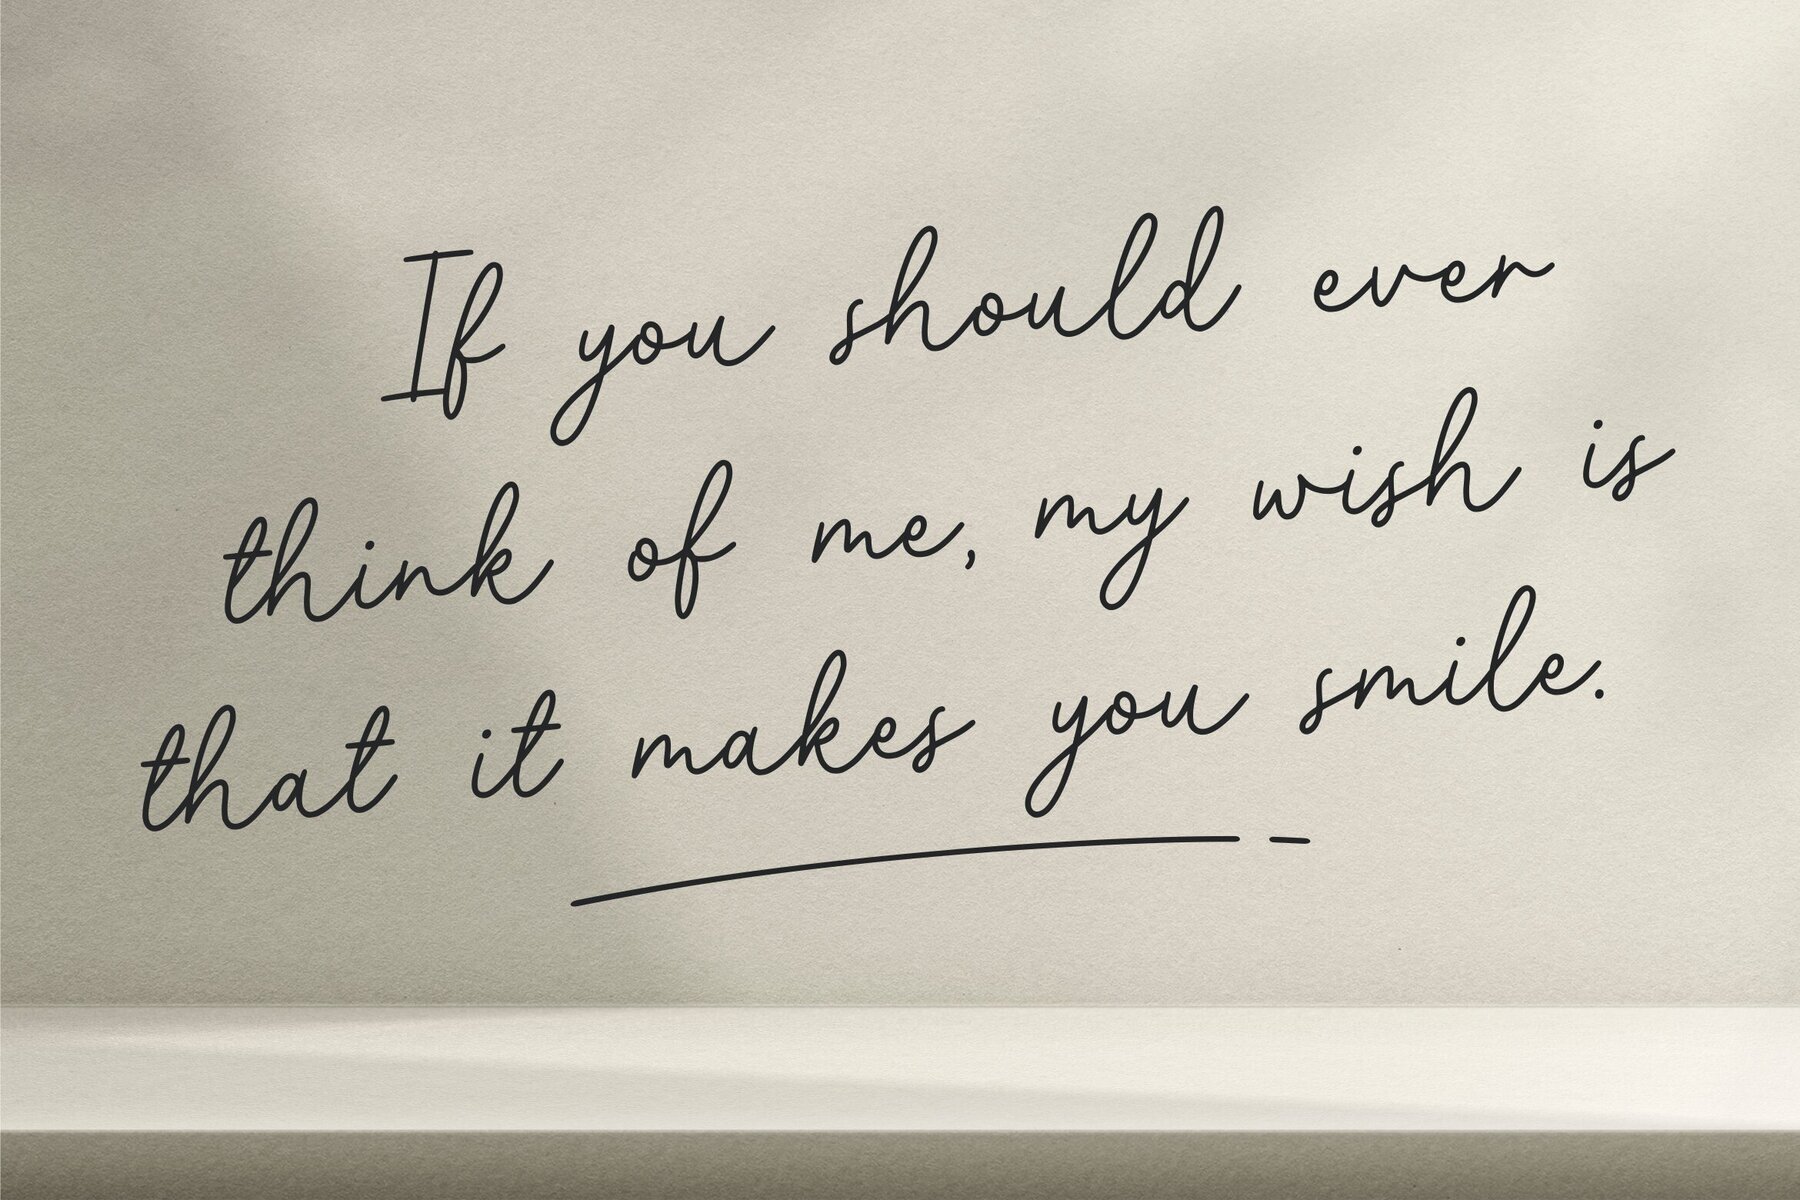 If you should ever
think of me, my wish is
that it makes you smile.